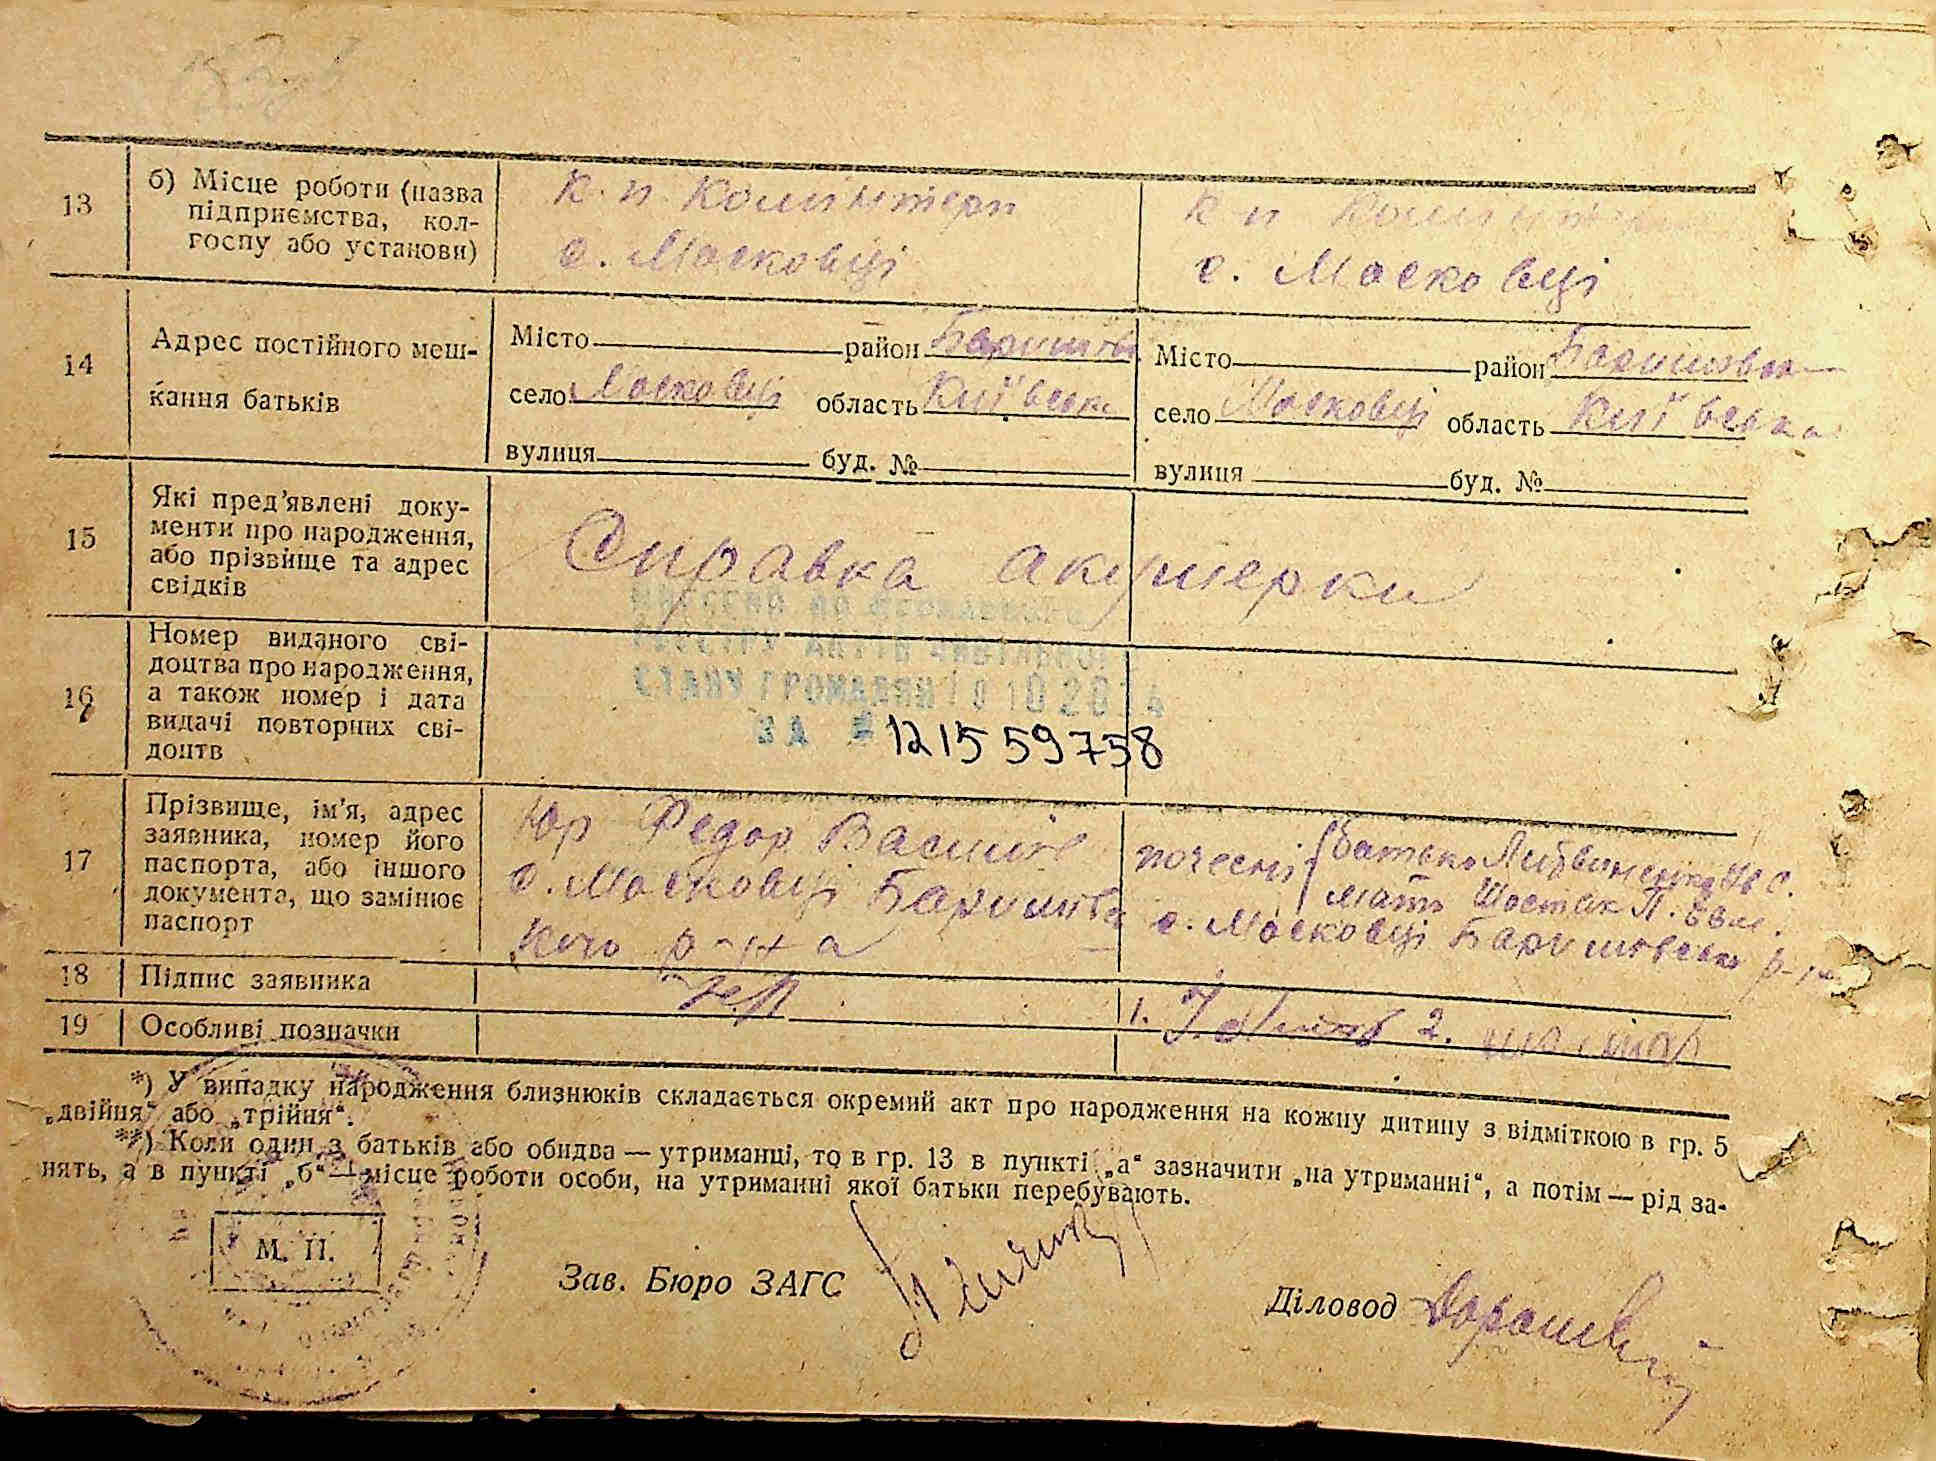 13
б) Місце роботи (назва
підприємства, кол-
госпу або установи)
к. п. Комінтерн
с. Масковці
к п Комінтерн
с. Масковці
14
Адрес постійного меш-
кання батьків
Місто район Баришівс
село Масковці область Київська
вулиця буд. №
Місто район Баришівськ
село Масковці область Київська
вулиця буд. №
15
Які пред'явлені доку-
менти про народження,
або прізвище та адрес
свідків
Справка акушерки
16
Номер виданого сві-
доцтва про народження,
а також номер і дата
видачі повторних сві-
доцтв
ВНЕСЕНО ДО ДЕРЖАВНОГО
РЕЄСТРУ АКТІВ ЦИВІЛЬНОГО
СТАНУ ГРОМАДЯН 10 10 2014
ЗА № 121559758
17
Прізвище, ім'я, адрес
заявника, номер його
паспорта, або іншого
документа, що замінює
паспорт
Юр Федор Васильов
с. Масковці Баришівсь
кого р-на
почесні батько Литвиненко Ів С.
мати Шостак П.
с. Масковці Баришівсько р-н
18
Підпис заявника
19
Особливі позначки
1. 2.
*) У випадку народження близнюків складається окремий акт про народження на кожну дитину з відміткою в гр. 5
„двійня“ або „трійня“.
**) Коли один з батьків або обидва — утриманці, то в гр. 13 в пункті „а“ зазначити „на утриманні“, а потім — рід за-
нять, а в пункті „б“ — місце роботи особи, на утриманні якої батьки перебувають.
М. П.
Зав. Бюро ЗАГС
Діловод